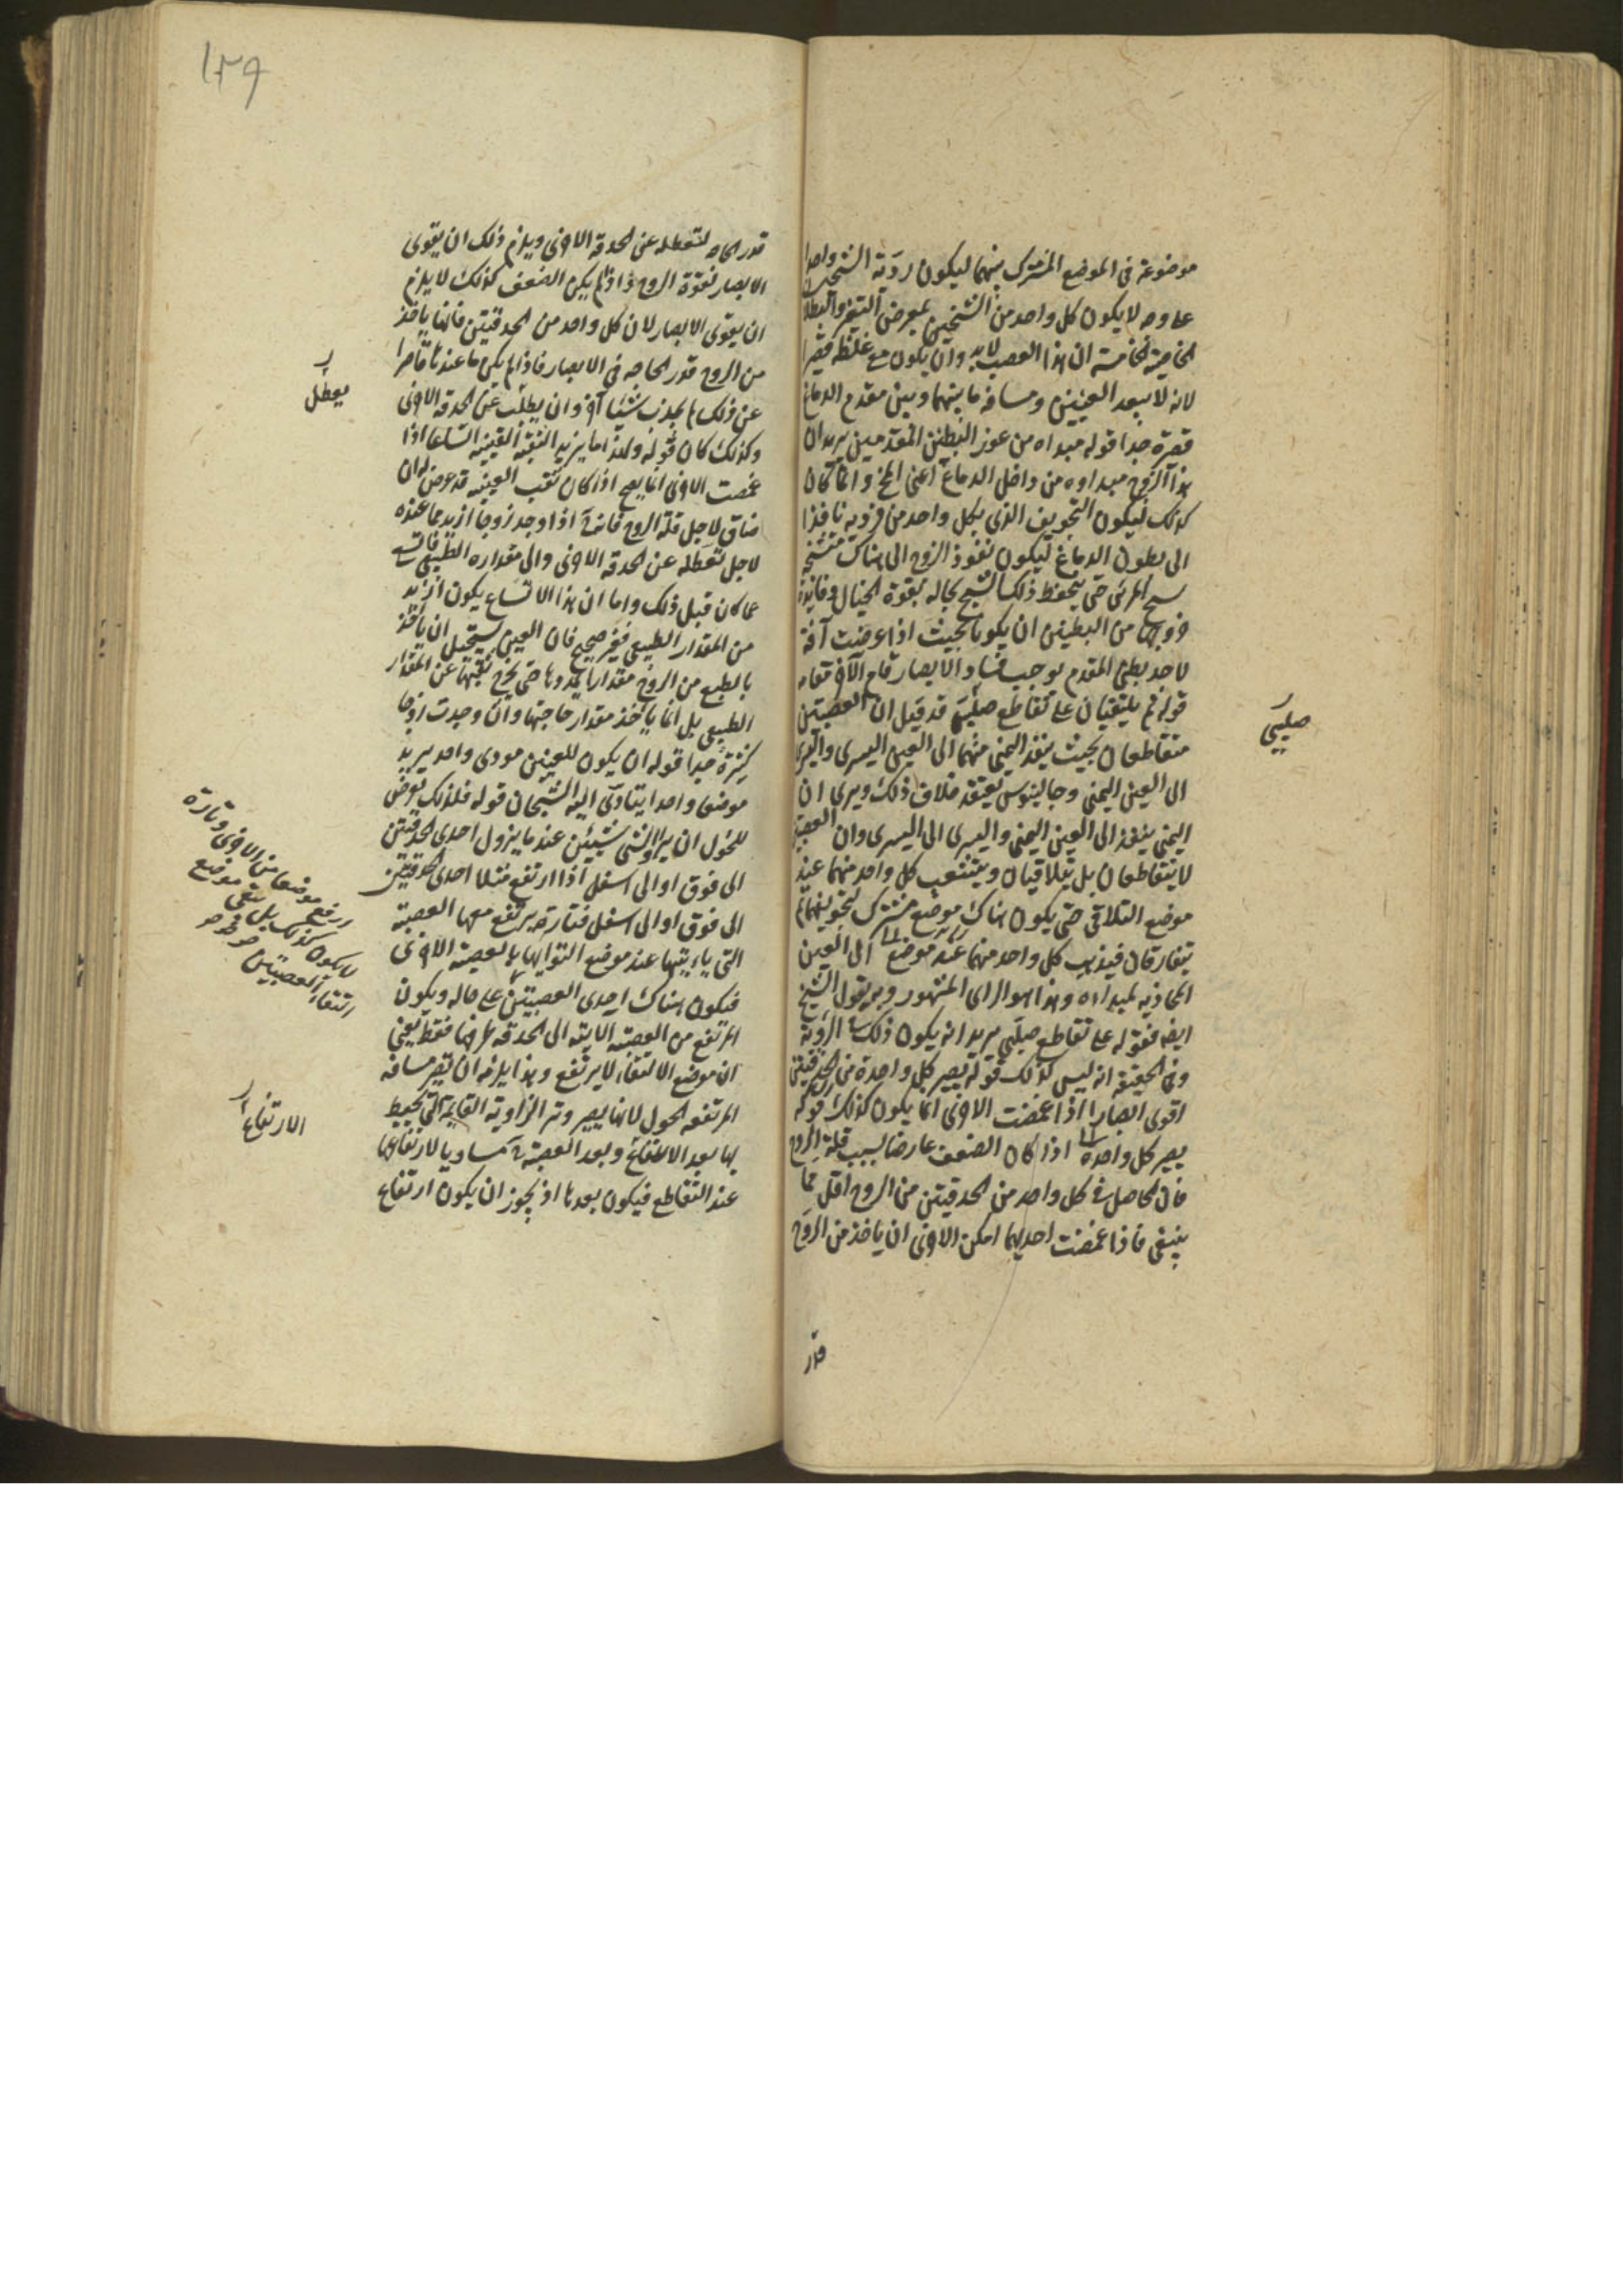 موضوعة فى الموضع المشترك بينهما ليكون رؤية الشبحين واحدا
على وجه لا يكون كل واحد من الشبحين بمعرض التغير والبطلا
الخامسة ان هذا العصب لا بد وان يكون مع غلظه قصيرا
لانه لا يبعد العينين ومسافة ما بينهما وبين مقدم الدماغ
قصيرة جدا قوله مبداه من غور البطنين المقدمين يريد ان
هذا الزوج مبداوه من داخل الدماغ اعنى المخ وانما كان
كذلك ليكون التجويف الذى بكل واحد من فرديه نافذا
الى بطون الدماغ ليكون نفوذ الروح الى هناك
شبح المرئى حتى يحفظ ذلك الشبح بحاله بقوة الخيال وفايدة
من البطينين ان يكونا بحيث اذا عرضت آفة
لاحد بطنى المقدم يوجب فساد الابصار قام الآخر مقامه
قوله ثم يلتقيان على تقاطع صليبى قد قيل ان العصبتين
متقاطعان بحيث ينفذ اليمنى منهما الى العين اليسرى واليسرى
الى العين اليمنى وجالينوس يعتقد خلاف ذلك ويرى ان
اليمنى ينفذ الى العين اليمنى واليسرى الى اليسرى وان العصبتين
لا يتقاطعان بل يتلاقيان ويتشعب كل واحد منهما عند
موضع التلاقى حتى يكون هناك موضع مشترك لتجويفهما ثم
يتفارقان فيذهب كل واحد منهما عند موضع الى العين
المحاذية لمبداه وهذا هو الراى المشهور وبه يقول الشيخ
ايضا فقوله على تقاطع صليبى يريد انه يكون ذلك الرؤية
وفى الحقيقة انه ليس كذلك قوله يصير كل واحدة من الحدقتين
اقوى ابصارا اذا غمضت الاخرى انما يكون كذلك قوله
يصير كل واحدة اذا كان الضعف عارضا بسبب قلة الروح
فان الحاصل فى كل واحد من الحدقتين من الروح اقل مما
ينبغى فاذا غمضت احديهما امكن الاخرى ان ياخذ من الروح
قدر
صليبى
١٣٩
قدر الحاجه لتعطله عن الحدقة الاخرى ويلزم ذلك ان يقوى
الابصار لقوة الروح واذا لم يكن الضعف كذلك لا يلزم
ان يقوى الابصار لان كل واحد من الحدقتين فانها ياخذ
من الروح قدر الحاجه فى الابصار فاذا لم يكن ما عندها قاصرا
عن ذلك لم يجذب شيئا آخر وان يطلب عن الحدقة الاخرى
وكذلك كان قوله ولهذا ما يزيد الثقبة العنبية اتساعا اذا
غمضت الاخرى انما يصح اذا كان ثقب العينيه قد عرض له ان
ضاق لاجل قلة الروح فانه اذا وجد روحا ازيد مما عنده
لاجل تعطله عن الحدقة الاخرى والى مقداره الطبيعى
عما كان قبل ذلك واما ان هذا الاتساع يكون ازيد
من المقدار الطبيعى فغير صحيح فان العين يستحيل ان ياخذ
بالطبع من الروح مقدارا يمددها حتى يخرج ثقبتها عن المقدار
الطبيعى بل انما ياخذ مقدار حاجتها وان وجدت روحا
كثيرة جدا قوله ان يكون للعينين مودى واحد يريد
موضعا واحدا يتادى اليه الشبحان قوله فلذلك يعرض
للحول ان يروا الشئ شيئين عندما يزول احدى الحدقتين
الى فوق او الى اسفل اذا ارتفع مثلا احدى الحدقتين
الى فوق او الى اسفل فتارة يرتفع معها العصبة
التى ياتيها عند موضع التوائها بالعصبة الاخرى
فيكون هناك احدى العصبتين على حاله ويكون
المرتفع من العصبة الاتية الى الحدقه طرفها فقط يعنى
ان موضع الالتقاء لا يرتفع وهذا يلزمه ان يقصر مسافه
المرتفعه للحول لانها يصير وتر الزاوية القايمة التى يحيط
بها بعد الالتقاء وبعد العصبة مساويا لارتفاعها
عند التقاطع فيكون بعدها اذ يجوز ان يكون ارتفاع
يعطل
موضعا من الاخرى وتارة
لا يكون كذلك بل يبقى موضع
التقاء العصبتين
الارتفاع